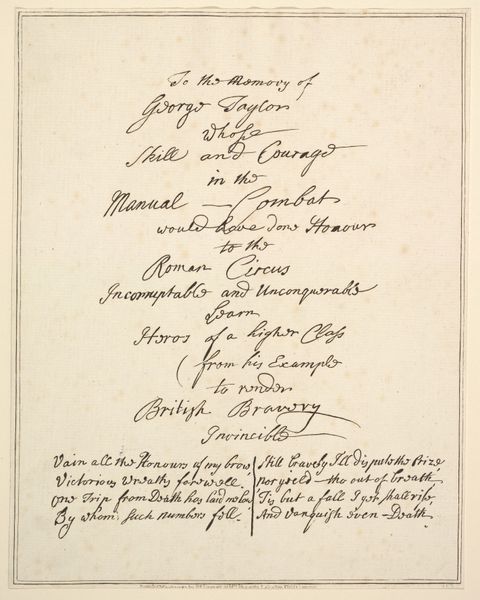 To the Memory of
George Taylor
whose
Skill and Courage
in the
Manual — Combat
would have done Honour
to the
Roman Circus
Incorruptable and Unconquerable
Learn
Heros of a higher Class
(from his Example
to render
British Bravery
Invincible
Vain all the Honours of my brow,
Victorious Wreaths farewell.
One Trip from Death has laid me low
By whom such numbers fell.
Still bravely I'll dispute the Prize,
nor yield — tho out of breath
Tis but a fall I yet shall rise,
And Vanquish even — Death.